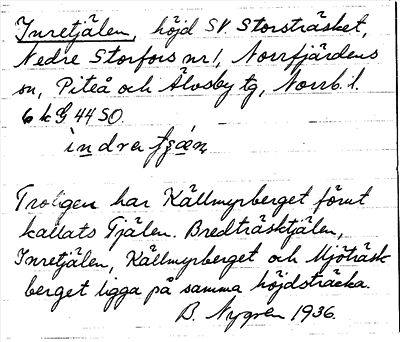 Inretjälen, höjd SV. Storsträsket,
Nedre Storfors nr 1, Norrfjärdens
sn, Piteå och Älvsby tg, Norrb. l.
6 k G 44 SO.
indra
Troligen har Källmyrberget förut
kallats Tjälen. Bredträsktjälen,
Inretjälen, Källmyrberget och Mjöträsk
berget ligga på samma höjdsträcka.
B. Nygren 1936.